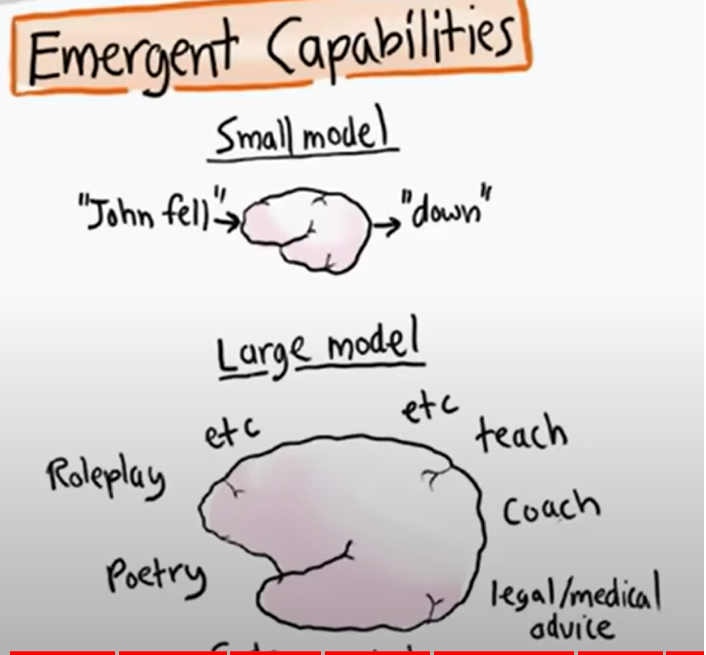 Emergent Capabilities
Small model
"John fell" → "down"
Large model
etc
etc
teach
Roleplay
Coach
Poetry
legal/medical
advice